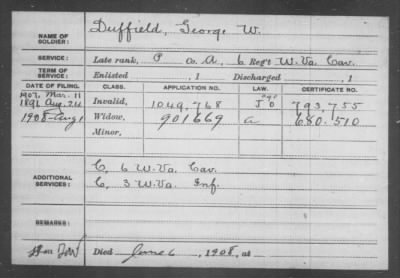 NAME OF SOLDIER: Duffield, George W.
SERVICE: Late rank, P Co. A, 6 Reg't W.Va. Cav.
TERM OF SERVICE: Enlisted , 1 Discharged , 1
DATE OF FILING. CLASS. APPLICATION NO. LAW. CERTIFICATE NO.
1907, Mar. 11
1891 Aug. 24 Invalid, 1049,768 793,755
1908-Aug 1 Widow, 901669 a 680,510
Minor,
ADDITIONAL SERVICES: C, 6 W.Va. Cav.
C, 3 W.Va. Inf.
REMARKS:
Died June 6, 1908, at